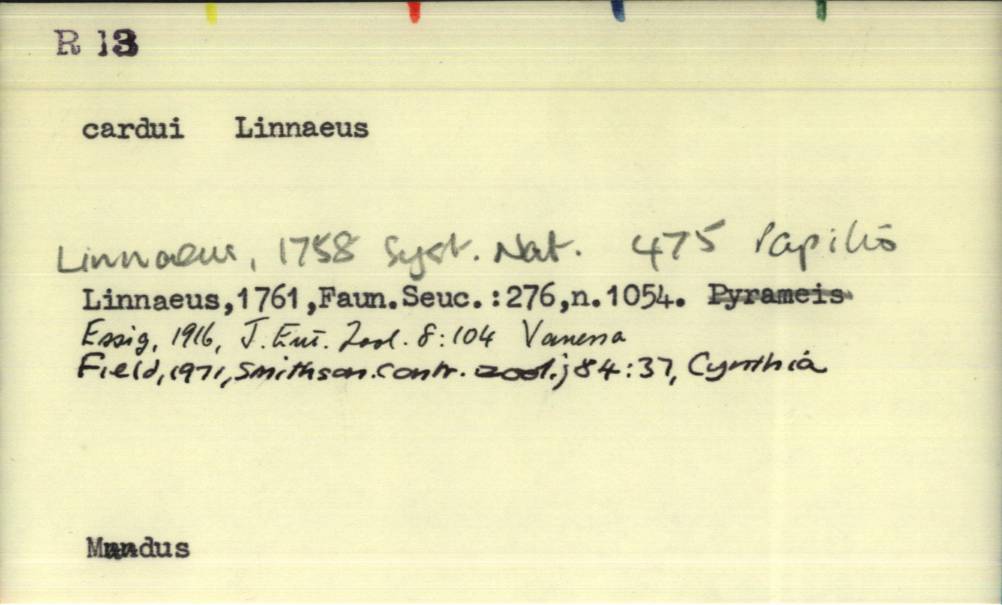 R 13
cardui Linnaeus
Linnaeus, 1758 Syst. Nat. 475 Papilio
Linnaeus,1761,Faun.Seuc.:276,n.1054. Pyrameis
Essig, 1916, J. Ent. Zool. 8:104 Vanessa
Field, 1971, Smithson. Contr. zool.; 84:37, Cynthia
Mundus